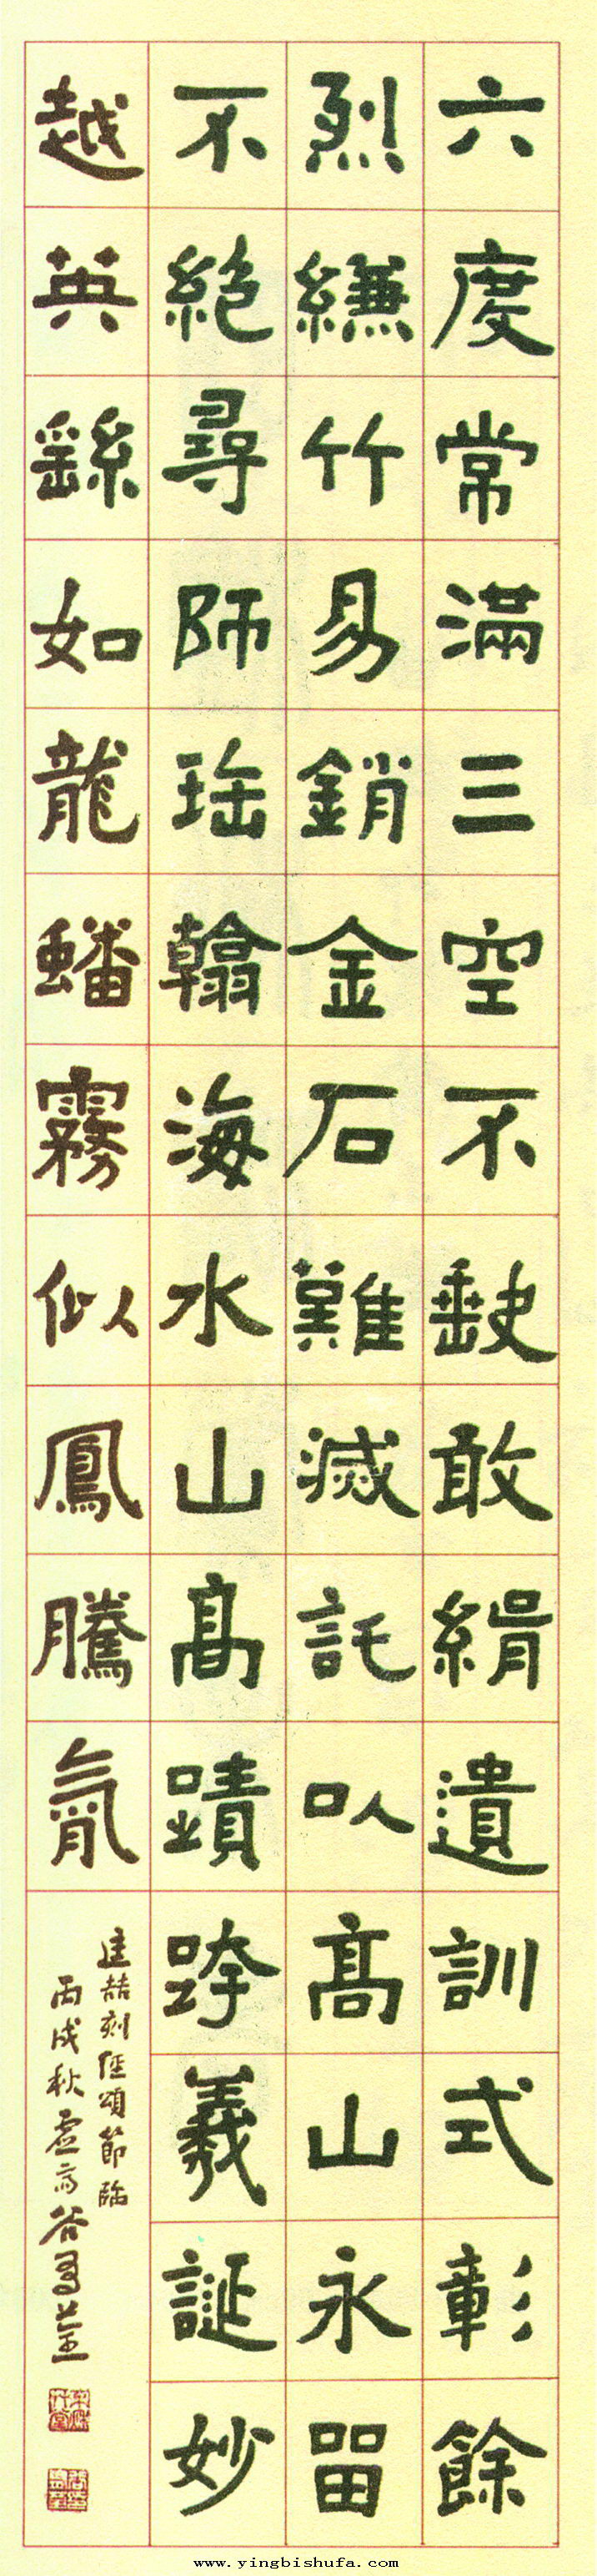 六度常滿三空不缺敢緝遺訓式彰餘
烈縑竹易銷金石難滅託以高山永留
不絕尋師珤翰海水山高蹟跨羲誕妙
越英繇如龍蟠霧似鳳騰氣
匡喆刻經頌節臨
丙戌秋虛齋谷有荃
www.yingbishufa.com